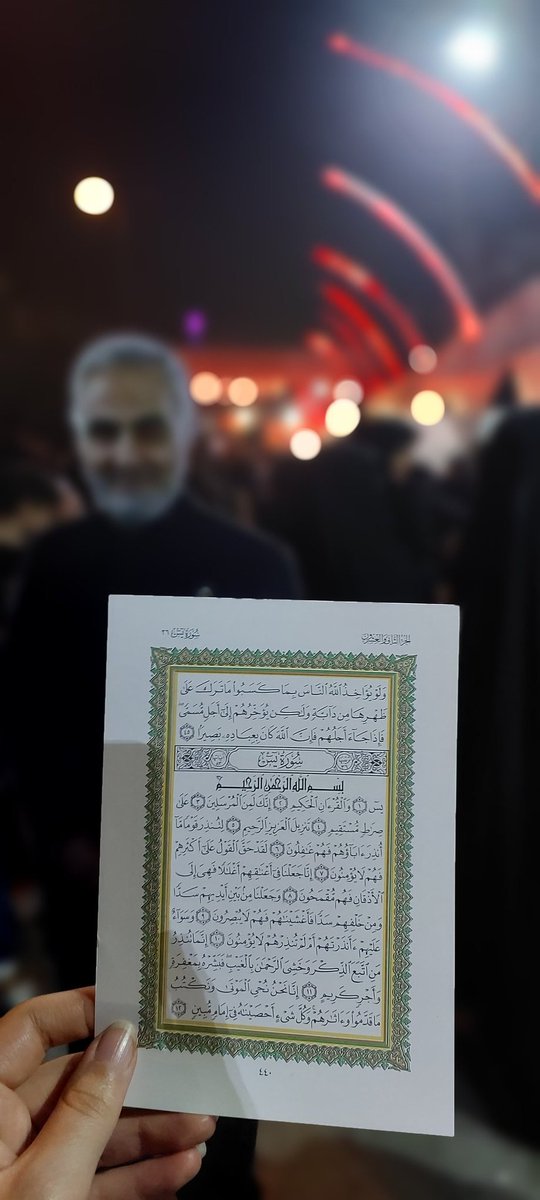 سُورَةُ يسٓ ٣٦
الجُزْءُ الثَّانِي وَالعِشْرُونَ
وَلَوْ يُؤَاخِذُ ٱللَّهُ ٱلنَّاسَ بِمَا كَسَبُوا۟ مَا تَرَكَ عَلَىٰ
ظَهْرِهَا مِن دَآبَّةٍ وَلَٰكِن يُؤَخِّرُهُمْ إِلَىٰٓ أَجَلٍ مُّسَمًّى ۖ
فَإِذَا جَآءَ أَجَلُهُمْ فَإِنَّ ٱللَّهَ كَانَ بِعِبَادِهِۦ بَصِيرًۢا ٤٥
سُورَةُ يسٓ
بِسْمِ ٱللَّهِ ٱلرَّحْمَٰنِ ٱلرَّحِيمِ
يسٓ ١ وَٱلْقُرْءَانِ ٱلْحَكِيمِ ٢ إِنَّكَ لَمِنَ ٱلْمُرْسَلِينَ ٣ عَلَىٰ
صِرَٰطٍ مُّسْتَقِيمٍ ٤ تَنزِيلَ ٱلْعَزِيزِ ٱلرَّحِيمِ ٥ لِتُنذِرَ قَوْمًا مَّآ
أُنذِرَ ءَابَآؤُهُمْ فَهُمْ غَٰفِلُونَ ٦ لَقَدْ حَقَّ ٱلْقَوْلُ عَلَىٰٓ أَكْثَرِهِمْ
فَهُمْ لَا يُؤْمِنُونَ ٧ إِنَّا جَعَلْنَا فِىٓ أَعْنَٰقِهِمْ أَغْلَٰلًا فَهِىَ إِلَى
ٱلْأَذْقَانِ فَهُم مُّقْمَحُونَ ٨ وَجَعَلْنَا مِنۢ بَيْنِ أَيْدِيهِمْ سَدًّا
وَمِنْ خَلْفِهِمْ سَدًّا فَأَغْشَيْنَٰهُمْ فَهُمْ لَا يُبْصِرُونَ ٩ وَسَوَآءٌ
عَلَيْهِمْ ءَأَنذَرْتَهُمْ أَمْ لَمْ تُنذِرْهُمْ لَا يُؤْمِنُونَ ١٠ إِنَّمَا تُنذِرُ
مَنِ ٱتَّبَعَ ٱلذِّكْرَ وَخَشِىَ ٱلرَّحْمَٰنَ بِٱلْغَيْبِ ۖ فَبَشِّرْهُ بِمَغْفِرَةٍ
وَأَجْرٍ كَرِيمٍ ١١ إِنَّا نَحْنُ نُحْىِ ٱلْمَوْتَىٰ وَنَكْتُبُ
مَا قَدَّمُوا۟ وَءَاثَٰرَهُمْ ۚ وَكُلَّ شَىْءٍ أَحْصَيْنَٰهُ فِىٓ إِمَامٍ مُّبِينٍ ١٢
٤٤٠